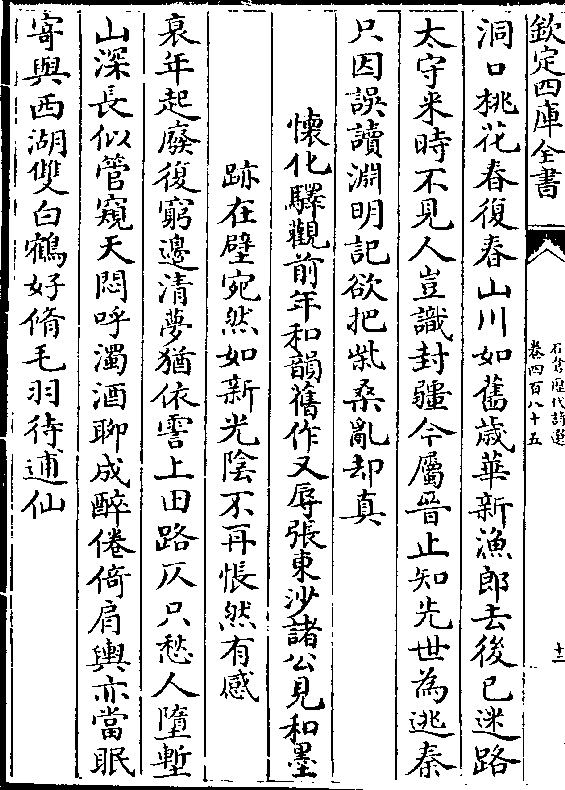 欽定四庫全書
石倉歷代詩選
卷四百八十五
十二
洞口桃花春復春山川如舊歲華新漁郎去後已迷路
太守来時不見人豈識封疆今屬晉止知先世為逃秦
只因誤讀淵明記欲把柴桑亂却真
懐化驛觀前年和韻舊作又辱張東沙諸公見和墨
跡在壁宛然如新光陰不再悵然有感
衰年起廢復窮邊清夢猶依霅上田路仄只愁人墮塹
山深長似管窺天悶呼濁酒聊成醉倦倚肩輿亦當眠
寄與西湖雙白鶴好脩毛羽待逋仙